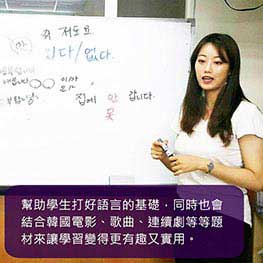 저도요
있다/없다.
집에 안 갑니다.
못
幫助學生打好語言的基礎，同時也會
結合韓國電影、歌曲、連續劇等等題
材來讓學習變得更有趣又實用。